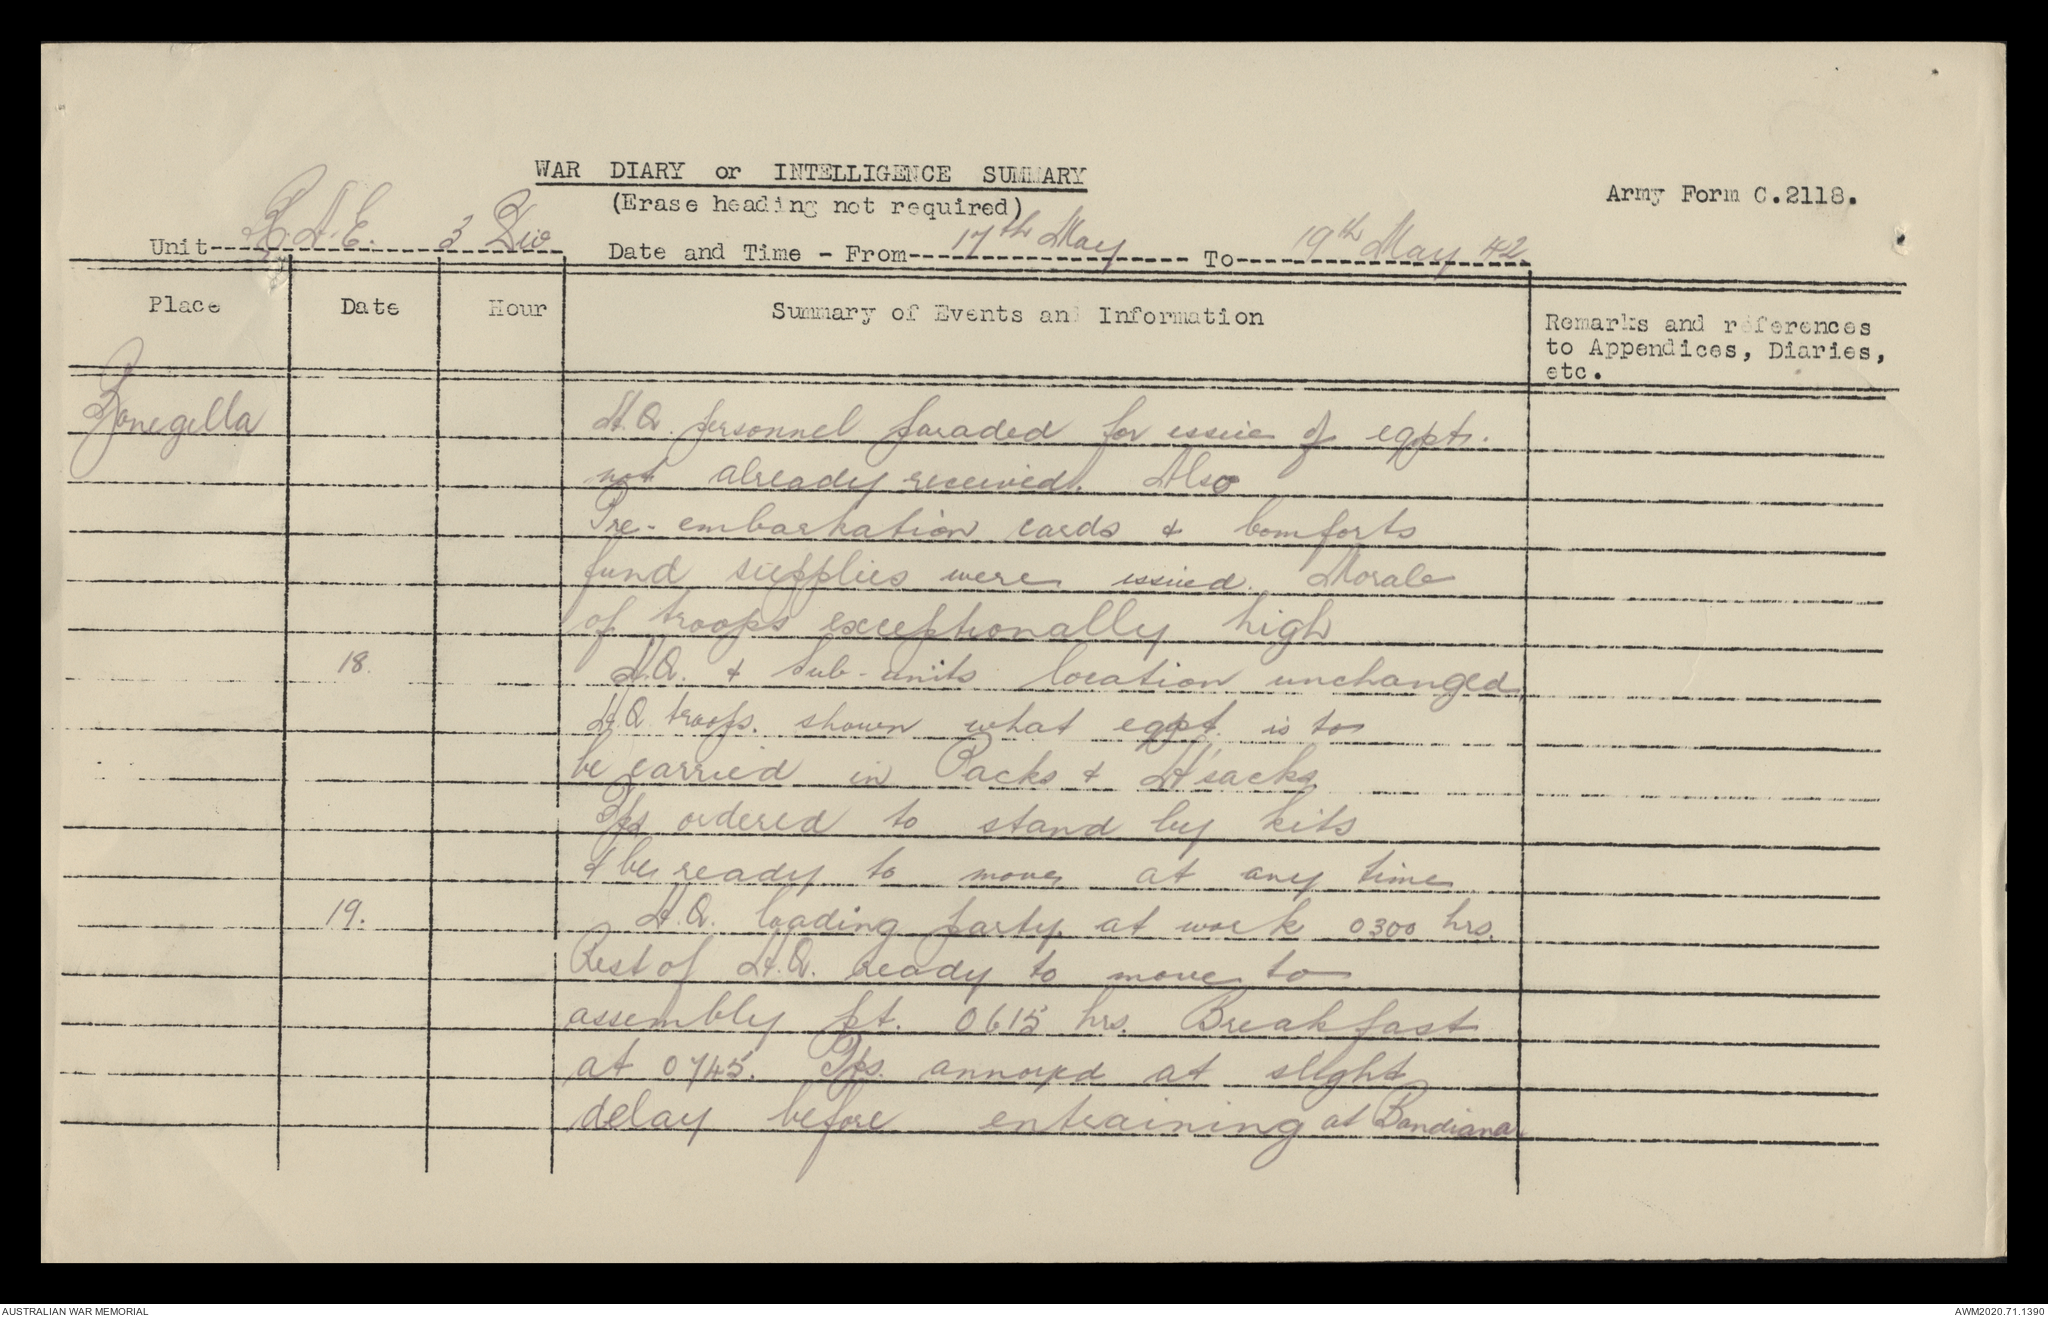 WAR DIARY or INTELLIGENCE SUMMARY
(Erase heading not required)
Army Form C.2118.
Unit R.A.E. 3 Div Date and Time - From 17th May To 19th May 42
Place Date Hour Summary of Events and Information Remarks and references
to Appendices, Diaries,
etc.
Bonegilla H.Q. personnel paraded for issue of eqpt.
not already received. Also
Pre-embarkation cards & Comforts
fund supplies were issued. Morale
of troops exceptionally high
18. H.Q. & Sub-units location unchanged
H.Q. troops. shown what eqpt. is to
be carried in Packs & H'sacks
Tps ordered to stand by kits
& be ready to move at any time
19. H.Q. loading party at work 0300 hrs.
Rest of H.Q. ready to move to
assembly pt. 0615 hrs. Breakfast
at 0745. Tps. annoyed at slight
delay before entraining at Bandiana
AUSTRALIAN WAR MEMORIAL
AWM2020.71.1390